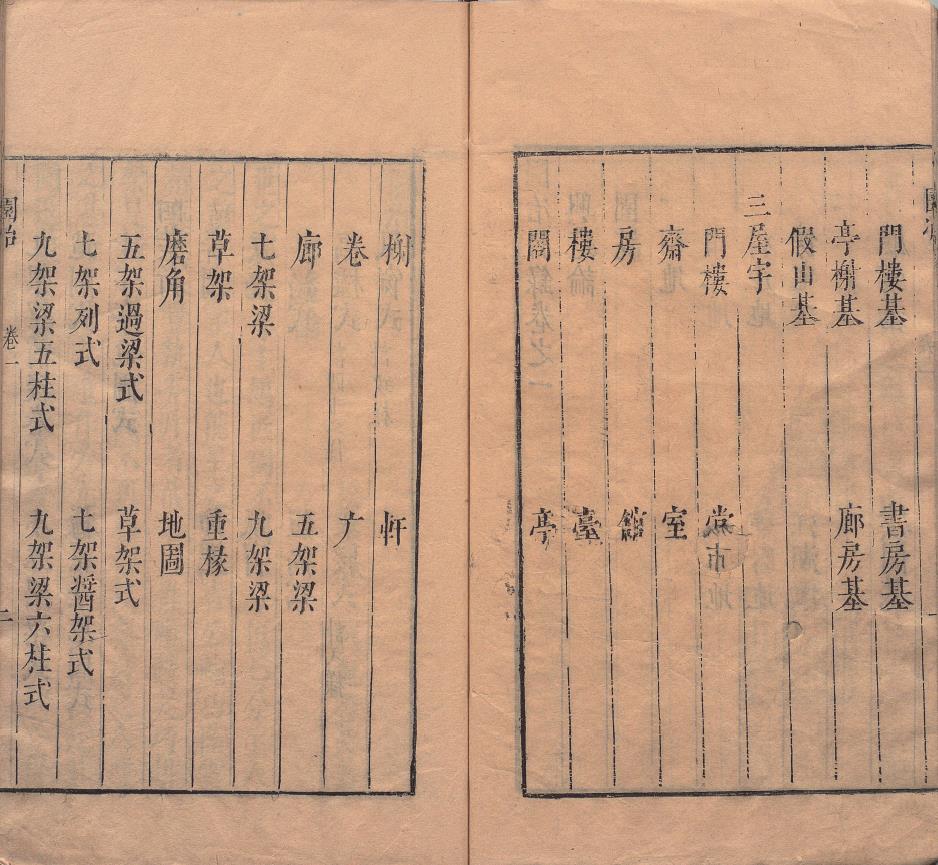 園冶
門樓基　書房基
亭榭基　廊房基
假山基
三屋宇
門樓　堂
齋　室
房　館
樓　臺
閣　亭
榭　軒
卷　广
廊　五架梁
七架梁　九架梁
草架　重椽
磨角　地圖
五架過梁式　草架式
七架列式　七架醬架式
九架梁五柱式　九架梁六柱式
園冶　卷一　二